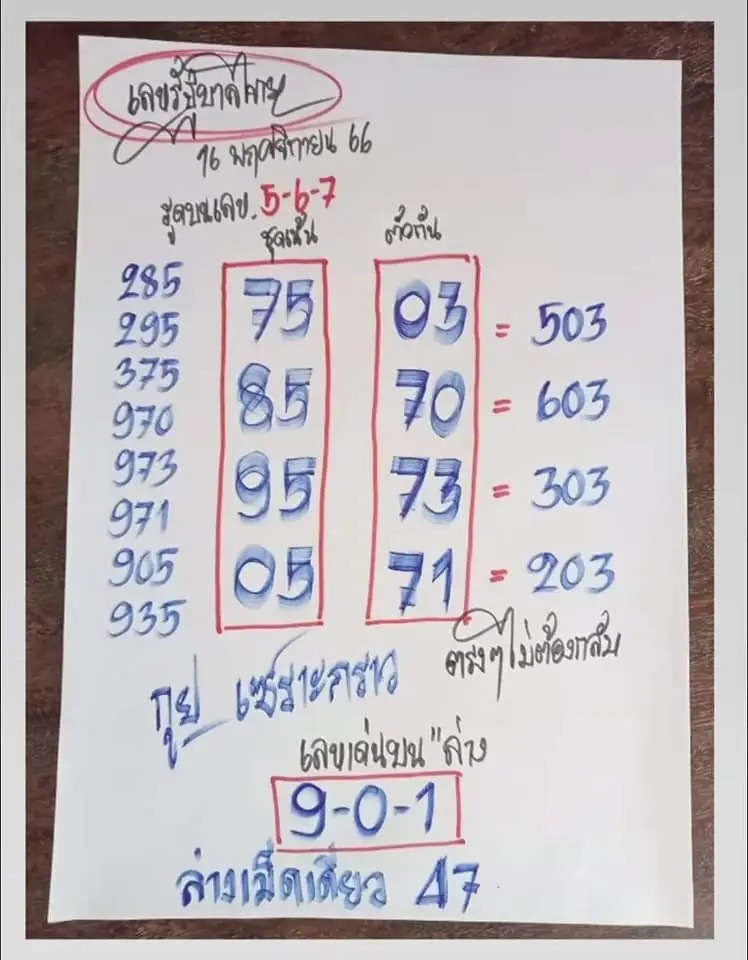 16 พฤศจิกายน 66
รูดบนเลข. 5-6-7
ชุดเน้น ตัวกัน
285
295
375
970
973
971
905
935
75
85
95
05
03 = 503
70 = 603
73 = 303
71 = 203
ตรงๆไม่ต้องกลับ
กูย
เลขเด่นบน"ล่าง
9-0-1
ล่างเม็ดเดียว 47